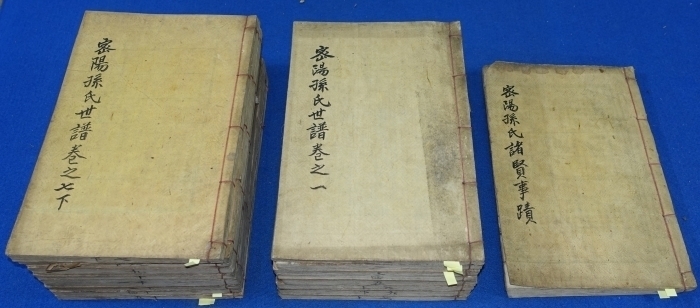 密陽孫氏世譜卷之七下
密陽孫氏世譜卷之一
密陽孫氏諸賢事蹟